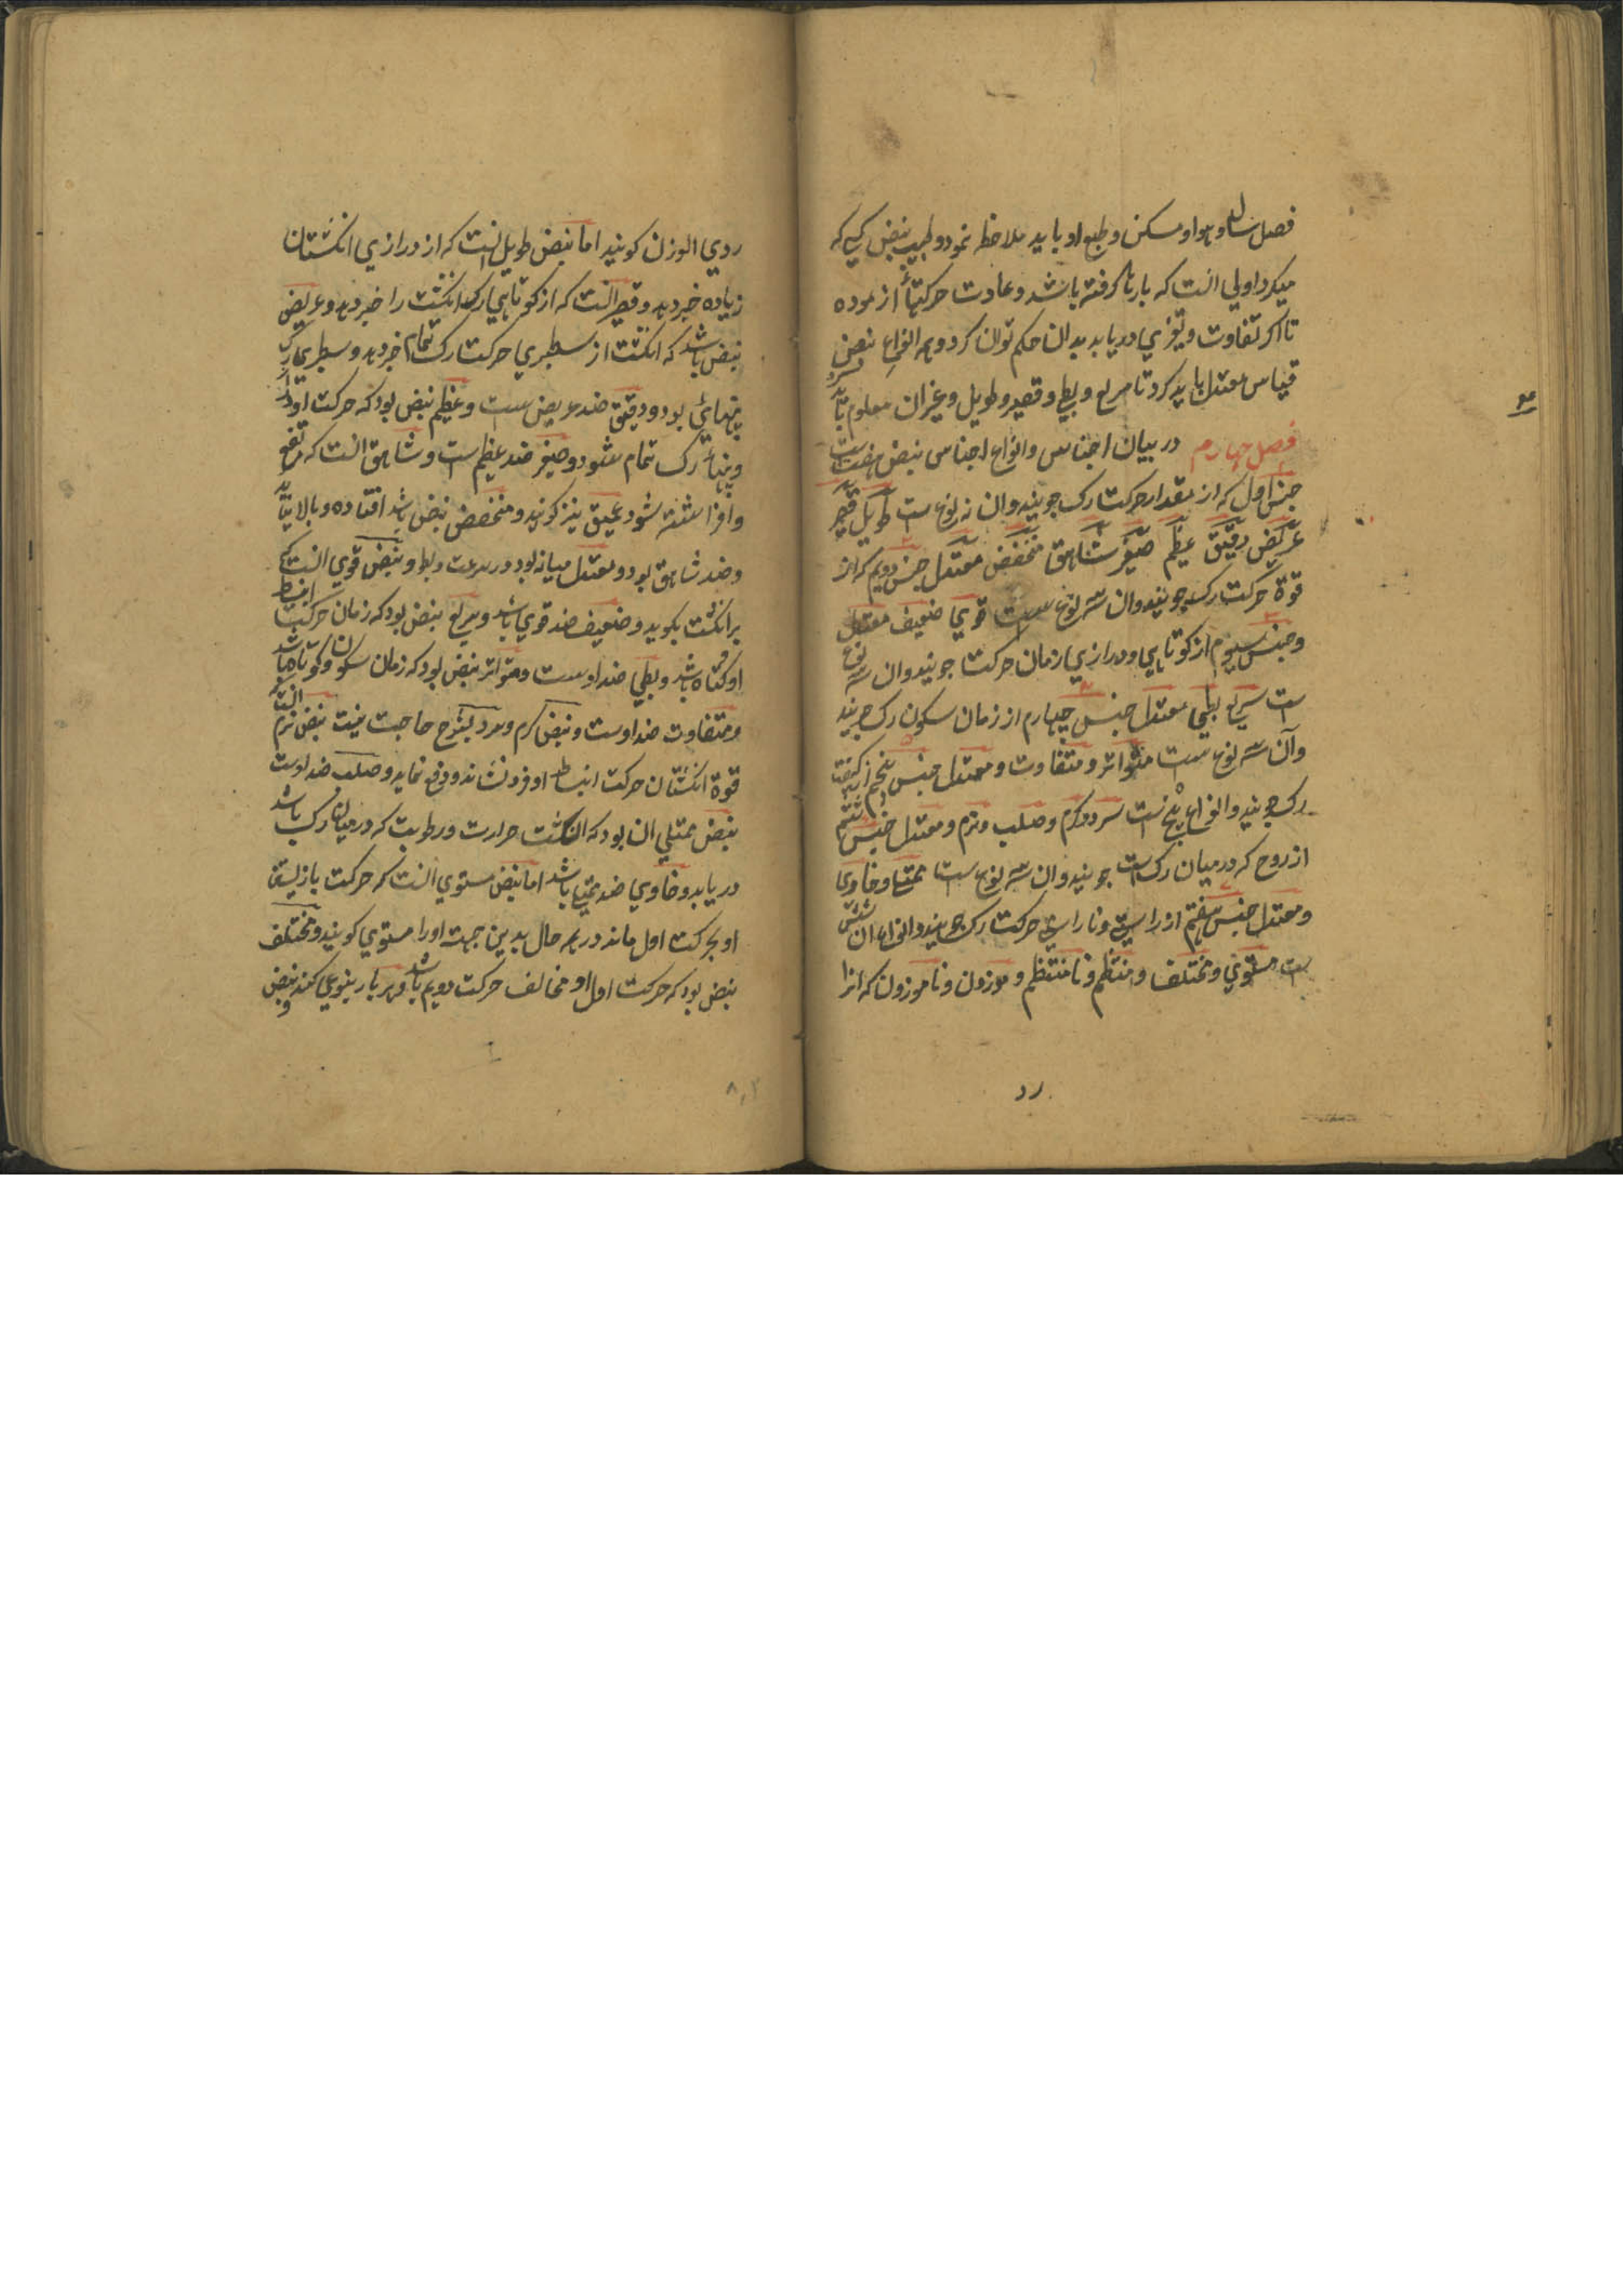 فصل سال و هوا و مسکن و طبع او باید ملاحظه نمود و طبیب نبض کسی که
میکرد اولی انست که بارها کرفته باشد و عادت حرکتها ازموده
تا اکر تفاوت و تغیری دریابد بدان حکم توان کرد و همه انواع نبض
قیاس معتدل باید کرد تا سریع و بطی و قصیر و طویل و غیر ان معلوم
فصل چهارم در بیان اجناس و انواع اجناس نبض هفت است
جنس اول که از مقدار حرکت رک جویند و ان نه نوع ست طویل قصیر
عریض دقیق عظیم صغیر شاهق منخفض معتدل جنس دویم که از
قوة حرکت رک جویند وان سه نوع ست قوی ضعیف معتدل
و جنس سیوم از کوتاهی و درازی زمان حرکت جویند وان سه نوع
ست سریع بطی معتدل جنس چهارم از زمان سکون رک جویند
وآن سه نوع ست متواتر و متفاوت و معتدل جنس پنجم از کیفیت
رک جویند و انواع پنج ست سرد و کرم و صلب و نرم و معتدل جنس ششم
از روح که درمیان رک ست جویند وان سه نوع ست ممتلی و خاوی
و معتدل جنس هفتم از راستی و ناراستی حرکت رک جویند و انواع ان شش
ست مستوی و مختلف و منتظم و نامنتظم و موزون و ناموزون که انرا
رد
ردی الوزن کویند اما نبض طویل انست که از درازی انکشتان
زیاده خبر دهد و قصیر انست که از کوتاهی رک انکشت را خبر دهد و عریض
نبض باشد که انکشت از سطبری حرکت رک تمام خبر دهد و سطبری رک
پنهائی بود و دقیق ضد عریض ست و عظیم نبض بود که حرکت او
و پنهاء رک تمام شود و صغیر ضد عظیم ست و شاهق انست که مرتفع
و افراشته شود و عمیق نیز کویند و منخفض نبض باشد افتاده و بالا نیاید
و ضد شاهق بود و معتدل میانه بود در سرعت و بطو و نبض قوی انست که
بر انکشت بکوبد و ضعیف ضد قوی باشد و سریع نبض بود که زمان حرکت انبساط
او کوتاه باشد و بطی ضد اوست و متواتر نبض بود که زمان سکون او کوتاه باشد
و متفاوت ضد اوست و نبض کرم و سرد بشرح حاجت نیست نبض نرم انست
قوة انکشتان حرکت انبساط او فرو نشاند و دفع نماید و صلب ضد اوست
نبض ممتلی ان بود که انکشت حرارت و رطوبت که درمیان رک باشد
دریابد و خاوی ضد ممتلی باشد اما نبض مستوی انست که حرکت بازپسین
او بحرکت اول ماند در همه حال بدین جهة او را مستوی کویند و مختلف
نبض بود که حرکت اول او مخالف حرکت دویم باشد و هر بار بنوعی کند و نبض